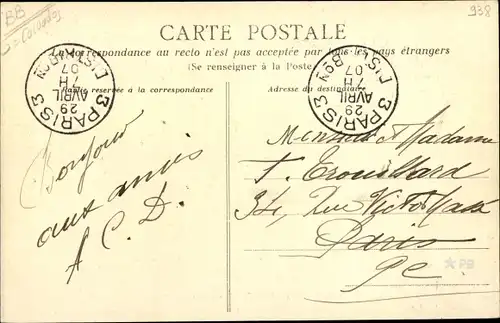 BB
938
CARTE POSTALE
La correspondance au recto n'est pas acceptée par tous les pays étrangers
(Se renseigner à la Poste)
Partie reservée à la correspondance
Adresse du destinataire
3 PARIS 3
29
AVRIL
7H
07
DIST
BON
3 PARIS 3
29
AVRIL
7H
07
DIST
BON
Bonjour
aux amis
A C. D.
Monsieur et Madame
F. Trouillard
34, Rue Victor Massé
Paris
PC
*PB